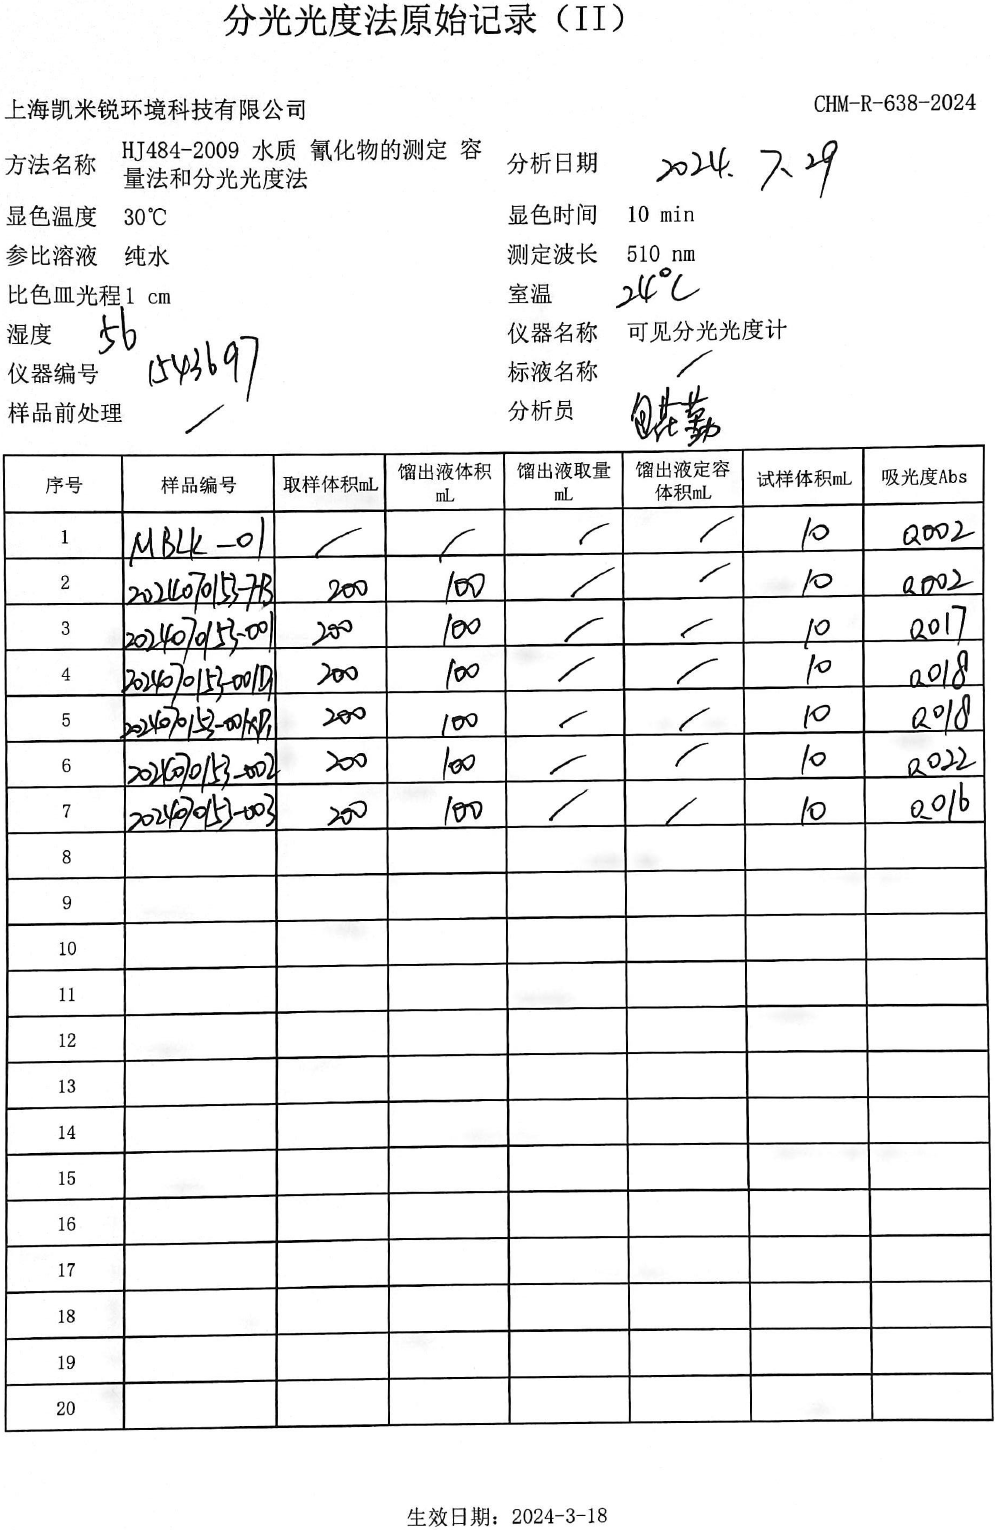 分光光度法原始记录（II）
上海凯米锐环境科技有限公司 CHM-R-638-2024
方法名称 HJ484-2009 水质 氰化物的测定 容量法和分光光度法 分析日期 2024.7.29
显色温度 30℃ 显色时间 10 min
参比溶液 纯水 测定波长 510 nm
比色皿光程1 cm 室温 24℃
湿度 56 仪器名称 可见分光光度计
仪器编号 1543697 标液名称 /
样品前处理 / 分析员
序号 样品编号 取样体积mL 馏出液体积mL 馏出液取量mL 馏出液定容体积mL 试样体积mL 吸光度Abs
1 MBLK-01 / / / / 10 0.002
2 2024070153-HB 200 100 / / 10 0.002
3 2024070153-001 200 100 / / 10 0.017
4 2024070153-001D1 200 100 / / 10 0.018
5 2024070153-001 200 100 / / 10 0.018
6 2024070153-002 200 100 / / 10 0.022
7 2024070153-003 200 100 / / 10 0.016
8
9
10
11
12
13
14
15
16
17
18
19
20
生效日期: 2024-3-18